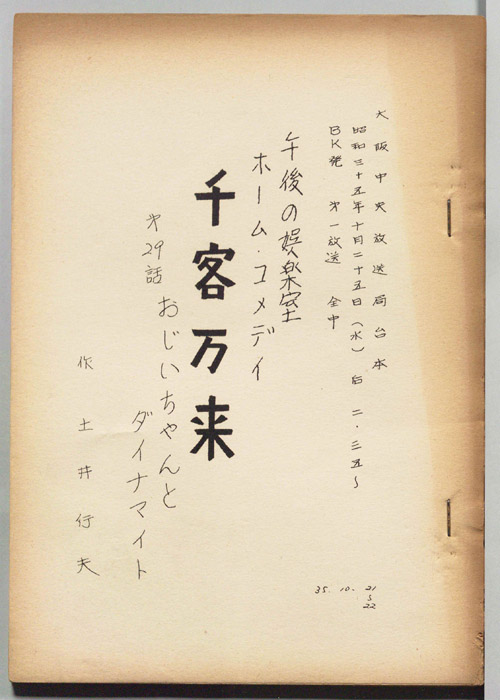 大阪中央放送局台本
昭和三十五年十月二十五日（水）后二・三五〜
BK発 第一放送 全中
午後の娯楽室
ホーム・コメディ
千客万来
第29話 おじいちゃんと
ダイナマイト
作 土井行夫
35. 10. 21
S
22